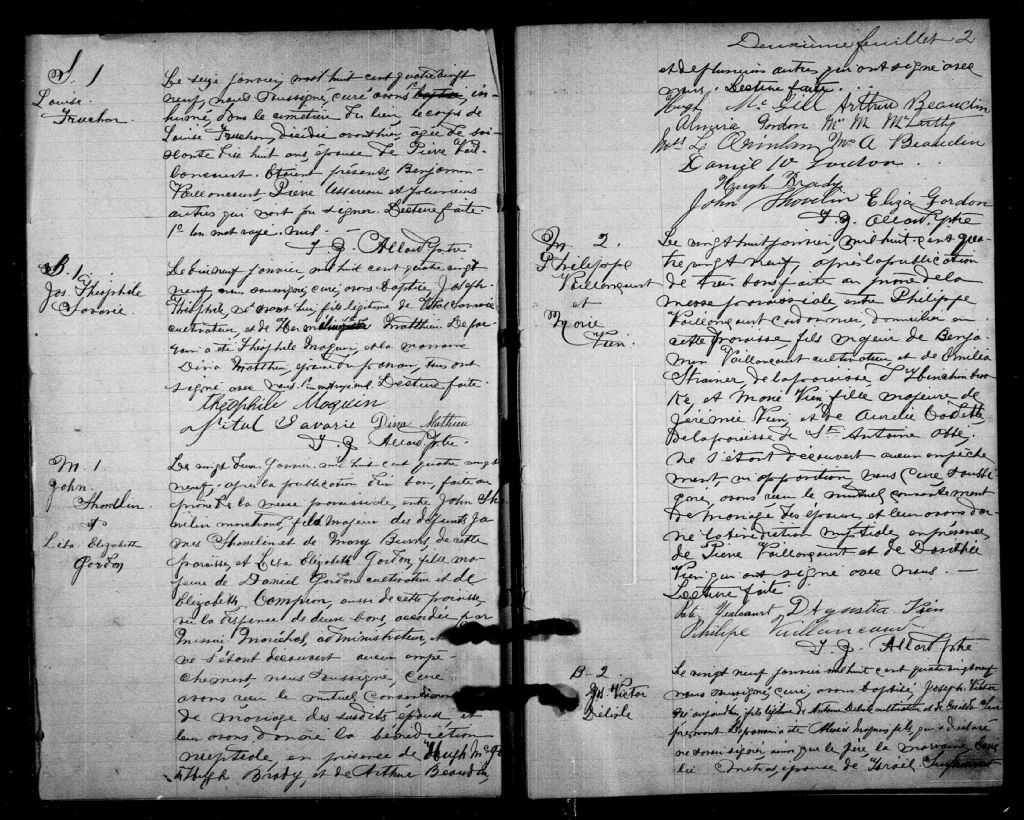 S. 1
Louise
Truchon.
Le seize janvier, mil huit cent quatre vingt
neuf, nous soussigné, curé avons 1° baptisé, in-
humé dans le cimetière du lieu, le corps de
Louise Truchon, décédée avant hier, agée de soi-
xante dix huit ans, épouse de Pierre Vail-
lancourt. Etaient présents, Benjamin
Vaillancourt, Pierre et plusieurs
autres qui n'ont pu signer. Lecture faite.
1° Un mot rayé nul.
F. J. Allard Ptre
B. 1
Jos. Théophile
Savarie
Le dix neuf janvier, mil huit cent quatre vingt
neuf, nous soussigné, curé, avons baptisé Joseph-
Théophile, né avant hier, fils légitime de Vital Savarie
cultivateur, et de Matthieu. Le par-
rain a été Théophile Moquin, et la marraine
Dina Matthieu, épouse du parrain, tous ont
signé avec nous. Lecture faite.
Théophile Moquin
Vital Savarie Dina Mathieu
F. J. Allard Ptre
M. 1
John
Shovelin
&
Lisa Elizabeth
Gordon
Le vingt deux Janvier mil huit cent quatre vingt
neuf, après la publication d'un ban, faite au
prône de la messe paroissiale, entre John Sho-
velin marchand, fils majeur des défunts Ja-
mes Shovelin et de Mary Burns de cette
paroisse, et Lisa Elizabeth Gordon, fille ma-
jeure de Daniel Gordon cultivateur et de
Elizabeth Campion, aussi de cette paroisse,
vu la dispense de deux bans, accordée par
Maréchal, administrateur,
ne s'étant découvert aucun empê-
chement nous soussigné, curé
avons reçu le mutuel consentement
de mariage des susdits époux, et
leur avons donné la bénédiction
nuptiale, en présence de Hugh
Hugh Brady, et de Arthur Beaudin,
Deuxième feuillet 2
et de plusieurs autres qui ont signé avec
nous. Lecture faite.
Hugh McGill Arthur Beaudin
Almira Gordon Mrs M
Mrs L. Mrs A Beaudin
Daniel W Gordon
Hugh Brady
John Shovelin Eliza Gordon
F. J. Allard Ptre
M. 2.
Philippe
Vaillancourt
et
Marie
Vien.
Le vingt huit janvier mil huit cent qua-
tre vingt neuf, après la publication
de trois bans faite au prône de la
messe paroissiale entre Philippe
Vaillancourt cordonnier, domicilié en
cette paroisse fils majeur de Benja-
min Vaillancourt cultivateur et de Emilia
de la paroisse d'Hinchinbroo-
ke et Marie Vien fille majeure de
Jérémie Vien, et de Aurelie
de la paroisse de St Antoine Abbé.
ne s'étant découvert aucun empêche-
ment ni opposition, nous Curé soussi-
gné, avons reçu le mutuel consentement
de mariage des époux, et leur avons don-
né la bénédiction nuptiale, en présence
de Pierre Vaillancourt et de Dorothée
Vien qui ont signé avec nous.
Lecture faite.
Vien
Philipe Vaillancourt
F. J. Allard Ptre
B. 2
Jos. Victor
Delisle
Le vingt neuf janvier mil huit cent quatre vingt neuf
nous soussigné, curé, avons baptisé Joseph Victor
né aujourd'hui fils légitime de Delisle cultivateur et de
Le parrain a été fils, qui a déclaré
ne savoir signer, ainsi que le père la marraine
épouse de Israël